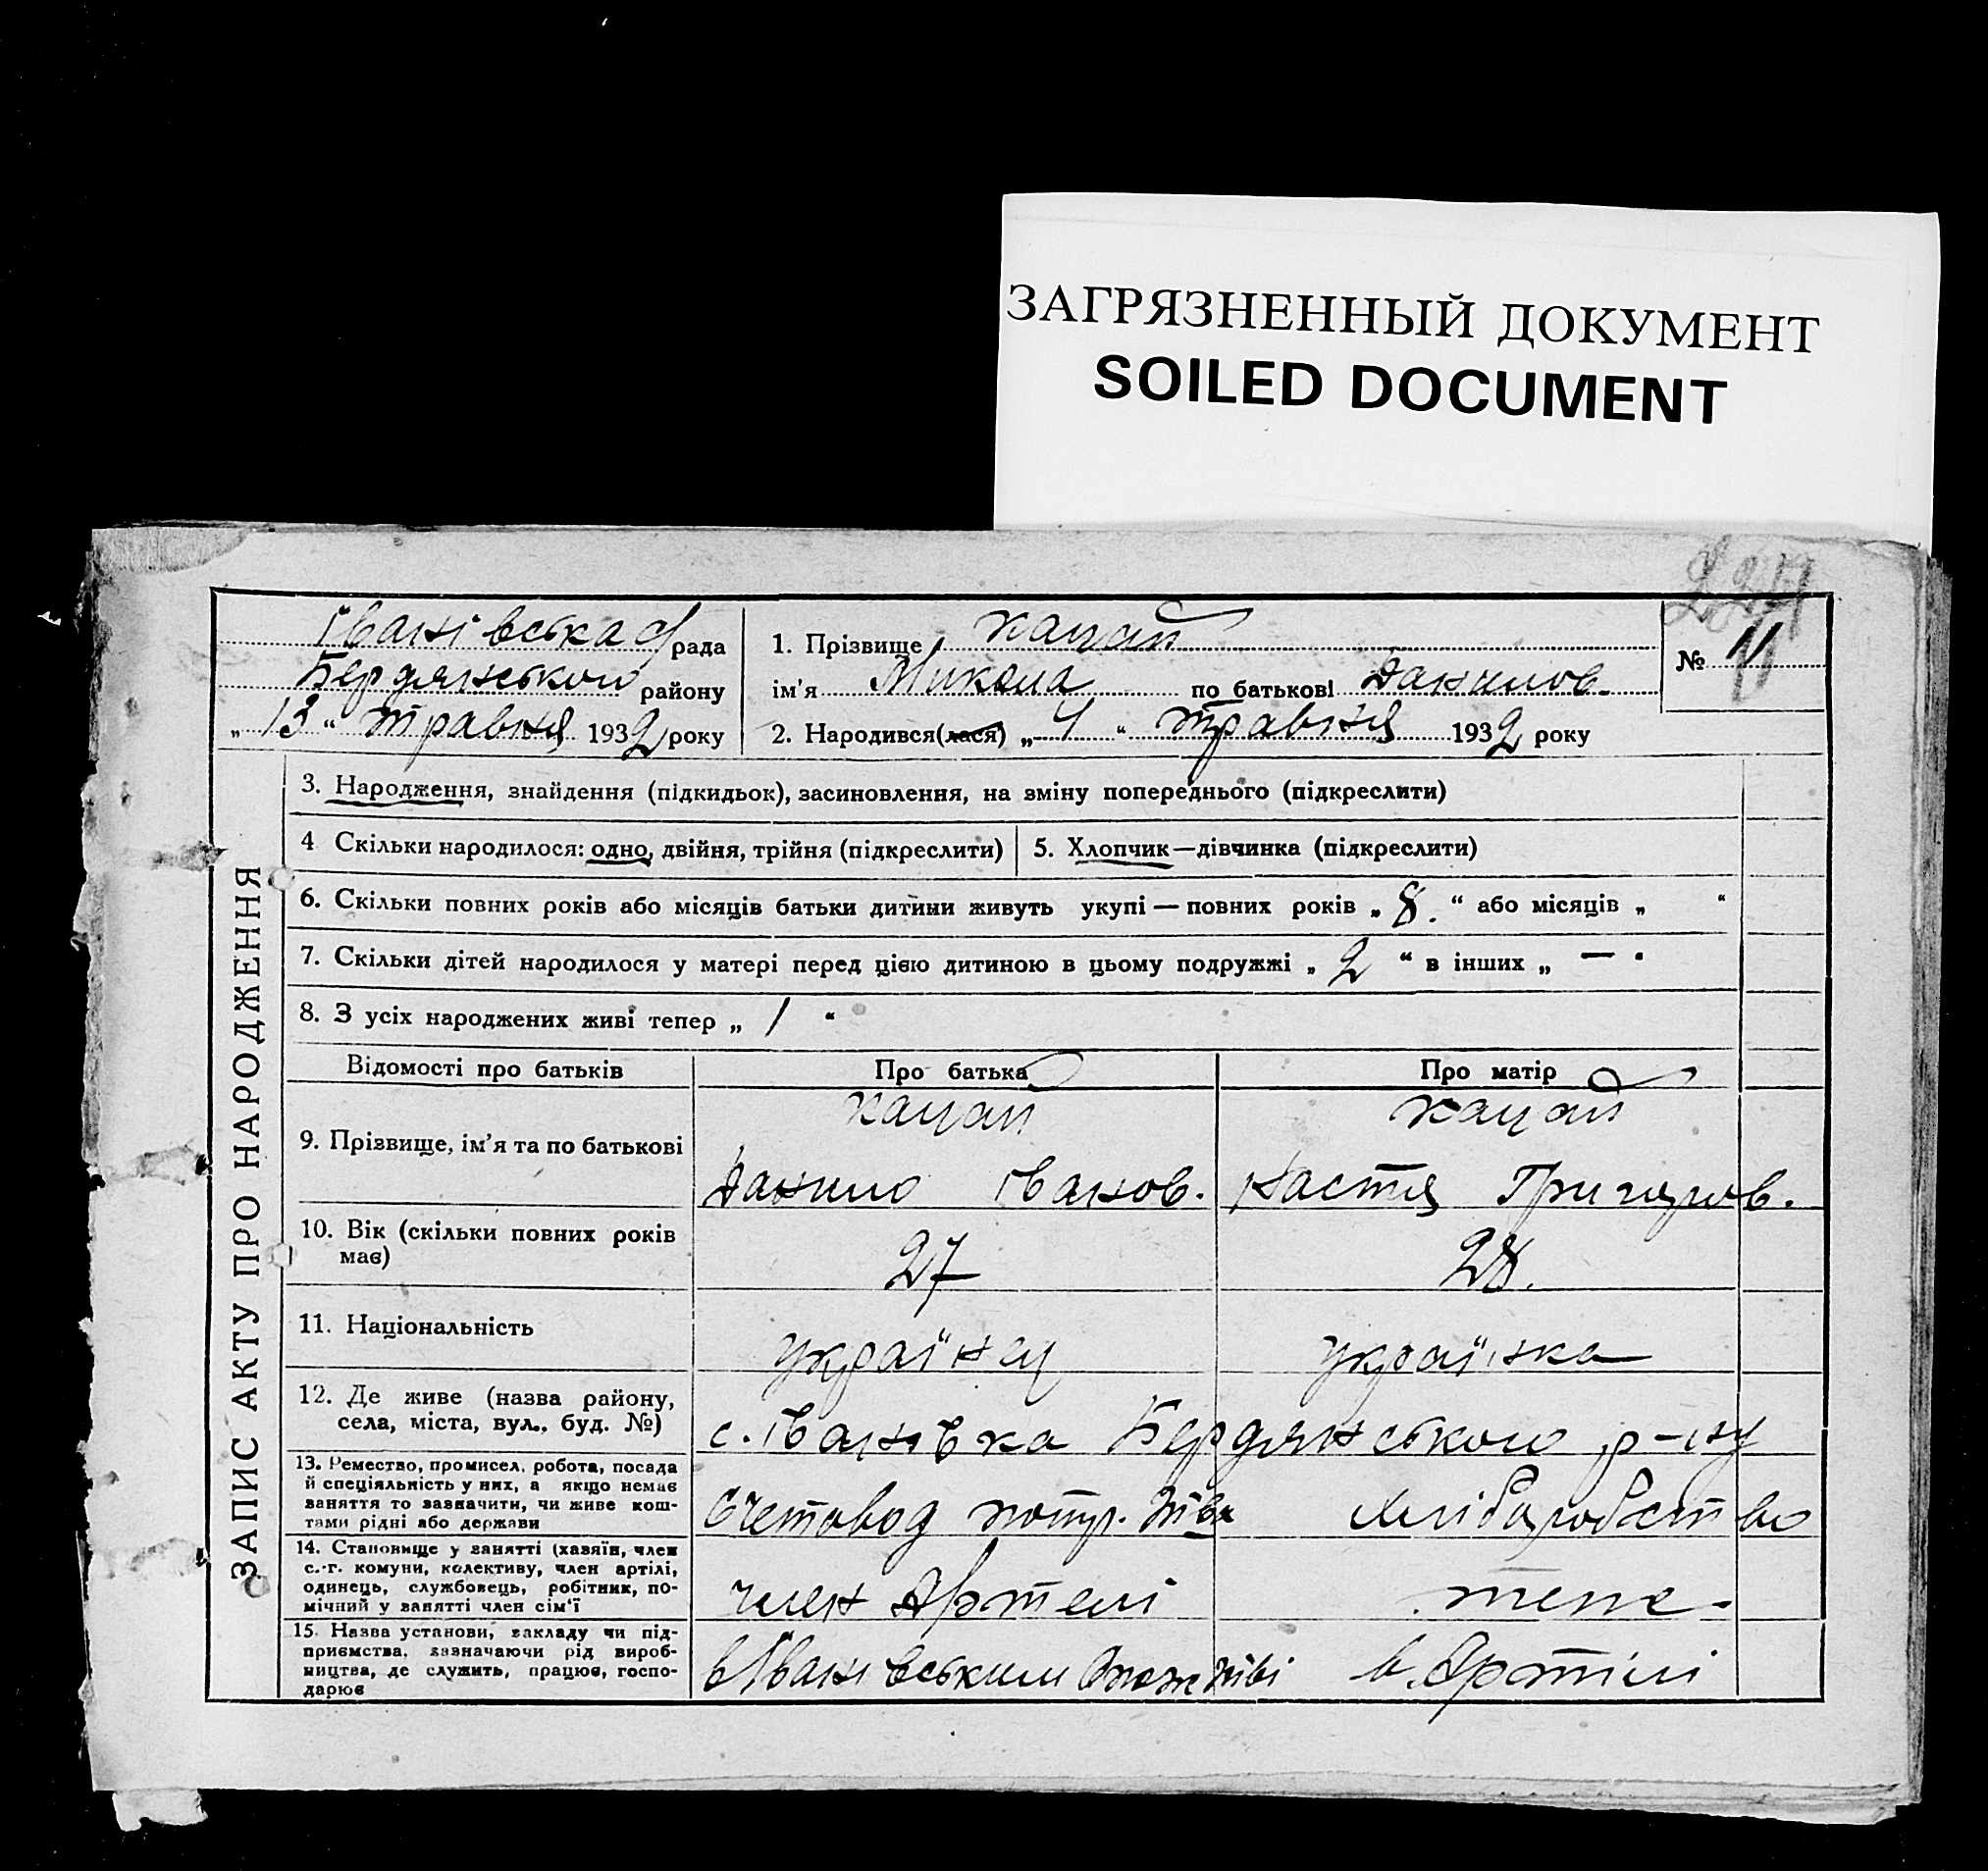 ЗАГРЯЗНЕННЫЙ ДОКУМЕНТ
SOILED DOCUMENT
ЗАПИС АКТУ ПРО НАРОДЖЕННЯ
Іванівська с/рада
Бердянського району
„13“ травня 1932 року
1. Прізвище Кацай
ім'я Микола по батькові Данилов.
2. Народився(лася) „4“ травня 1932 року
№ 11
3. Народження, знайдення (підкидьок), засиновлення, на зміну попереднього (підкреслити)
4 Скільки народилося: одно, двійня, трійня (підкреслити)
5. Хлопчик—дівчинка (підкреслити)
6. Скільки повних років або місяців батьки дитини живуть укупі — повних років „8.“ або місяців „ “
7. Скільки дітей народилося у матері перед цією дитиною в цьому подружжі „2“ в інших „—“
8. З усіх народжених живі тепер „1“
Відомості про батьків Про батька Про матір
9. Прізвище, ім'я та по батькові
Кацай Кацай
Данило Іванов. Настя Григоров.
10. Вік (скільки повних років
має)
27 28.
11. Національність
українец українка
12. Де живе (назва району,
села, міста, вул., буд. №)
с. Іванівка Бердянського р-ну
13. Ремество, промисел, робота, посада
й спеціяльність у них, а якщо немає
заняття то зазначити, чи живе кош-
тами рідні або держави
Счетовод потр. т-ва Хліборобство
14. Становище у занятті (хазяїн, член
с.-г. комуни, колективу, член артілі,
одинець, службовець, робітник, по-
мічний у занятті член сім'ї
член Артелі теже.
15. Назва установи, закладу чи під-
приємства, зазначаючи рід вироб-
ництва, де служить, працює, госпо-
дарює
в Іванівським в. Артілі